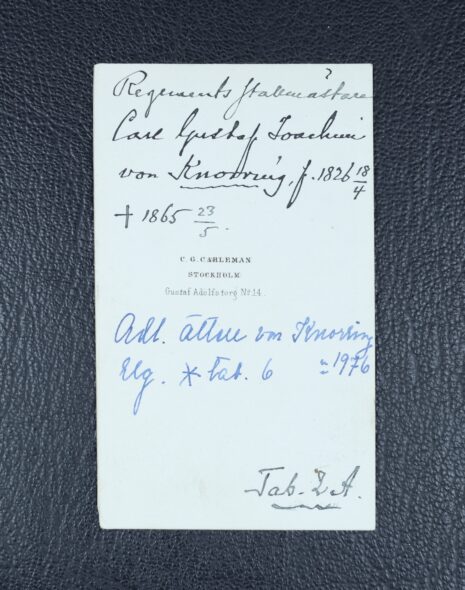 Regements Stallmästare
Carl Gustaf Joachim
von Knorring, f. 1826 18/4
† 1865 23/5.
C. G. CARLEMAN
STOCKHOLM
Gustaf Adolfs torg No 14.
Adl. ätten von Knorring
Elg. * tab. 6 1976
Tab. 2 A.